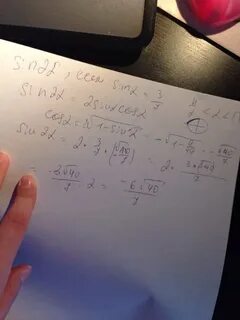 sin2α, если sinα = 3/7  π/2 < α < π
sin2α = 2sinα cosα
cosα = √1-sin²α = -√1-
sin2α = 2 · 3/7 · (√40/7) = 2 · 3·√40/7
= 3√40/7 · 2 = -6√40/7